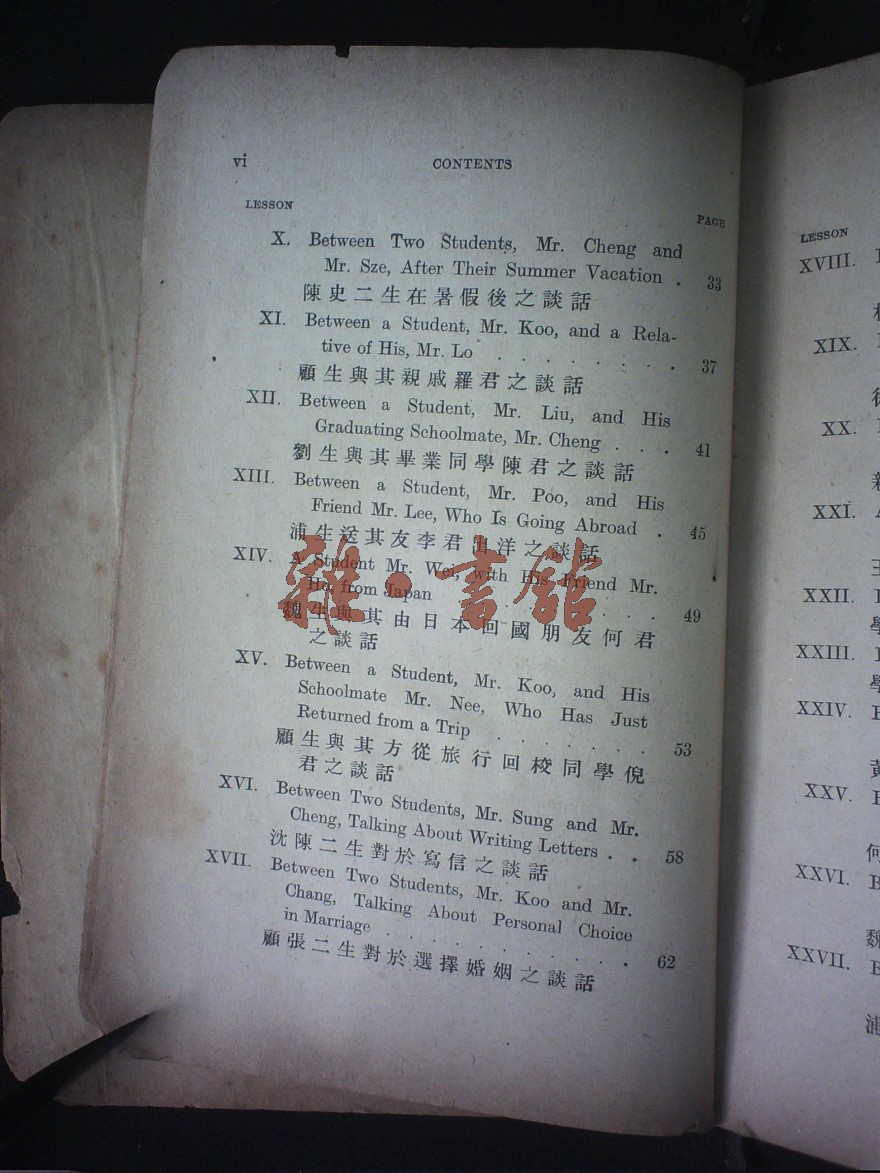 vi
CONTENTS
LESSON
PAGE
X. Between Two Students, Mr. Cheng and
Mr. Sze, After Their Summer Vacation . 33
陳史二生在暑假後之談話
XI. Between a Student, Mr. Koo, and a Rela-
tive of His, Mr. Lo . . . . . . 37
顧生與其親戚羅君之談話
XII. Between a Student, Mr. Liu, and His
Graduating Schoolmate, Mr. Cheng . . . 41
劉生與其畢業同學陳君之談話
XIII. Between a Student, Mr. Poo, and His
Friend Mr. Lee, Who Is Going Abroad . 45
浦生送其友李君出洋之談話
XIV. A Student Mr. Wei, with His Friend Mr.
Ho, from Japan . . . . . . . 49
魏生與其由日本回國朋友何君
之談話
XV. Between a Student, Mr. Koo, and His
Schoolmate Mr. Nee, Who Has Just
Returned from a Trip . . . . . . . 53
顧生與其方從旅行回校同學倪
君之談話
XVI. Between Two Students, Mr. Sung and Mr.
Cheng, Talking About Writing Letters . . 58
沈陳二生對於寫信之談話
XVII. Between Two Students, Mr. Koo and Mr.
Chang, Talking About Personal Choice
in Marriage . . . . . . . . . . 62
顧張二生對於選擇婚姻之談話
雜·書館
LESSON
XVIII.
XIX.
XX.
XXI.
XXII.
XXIII.
XXIV.
XXV.
XXVI.
XXVII.